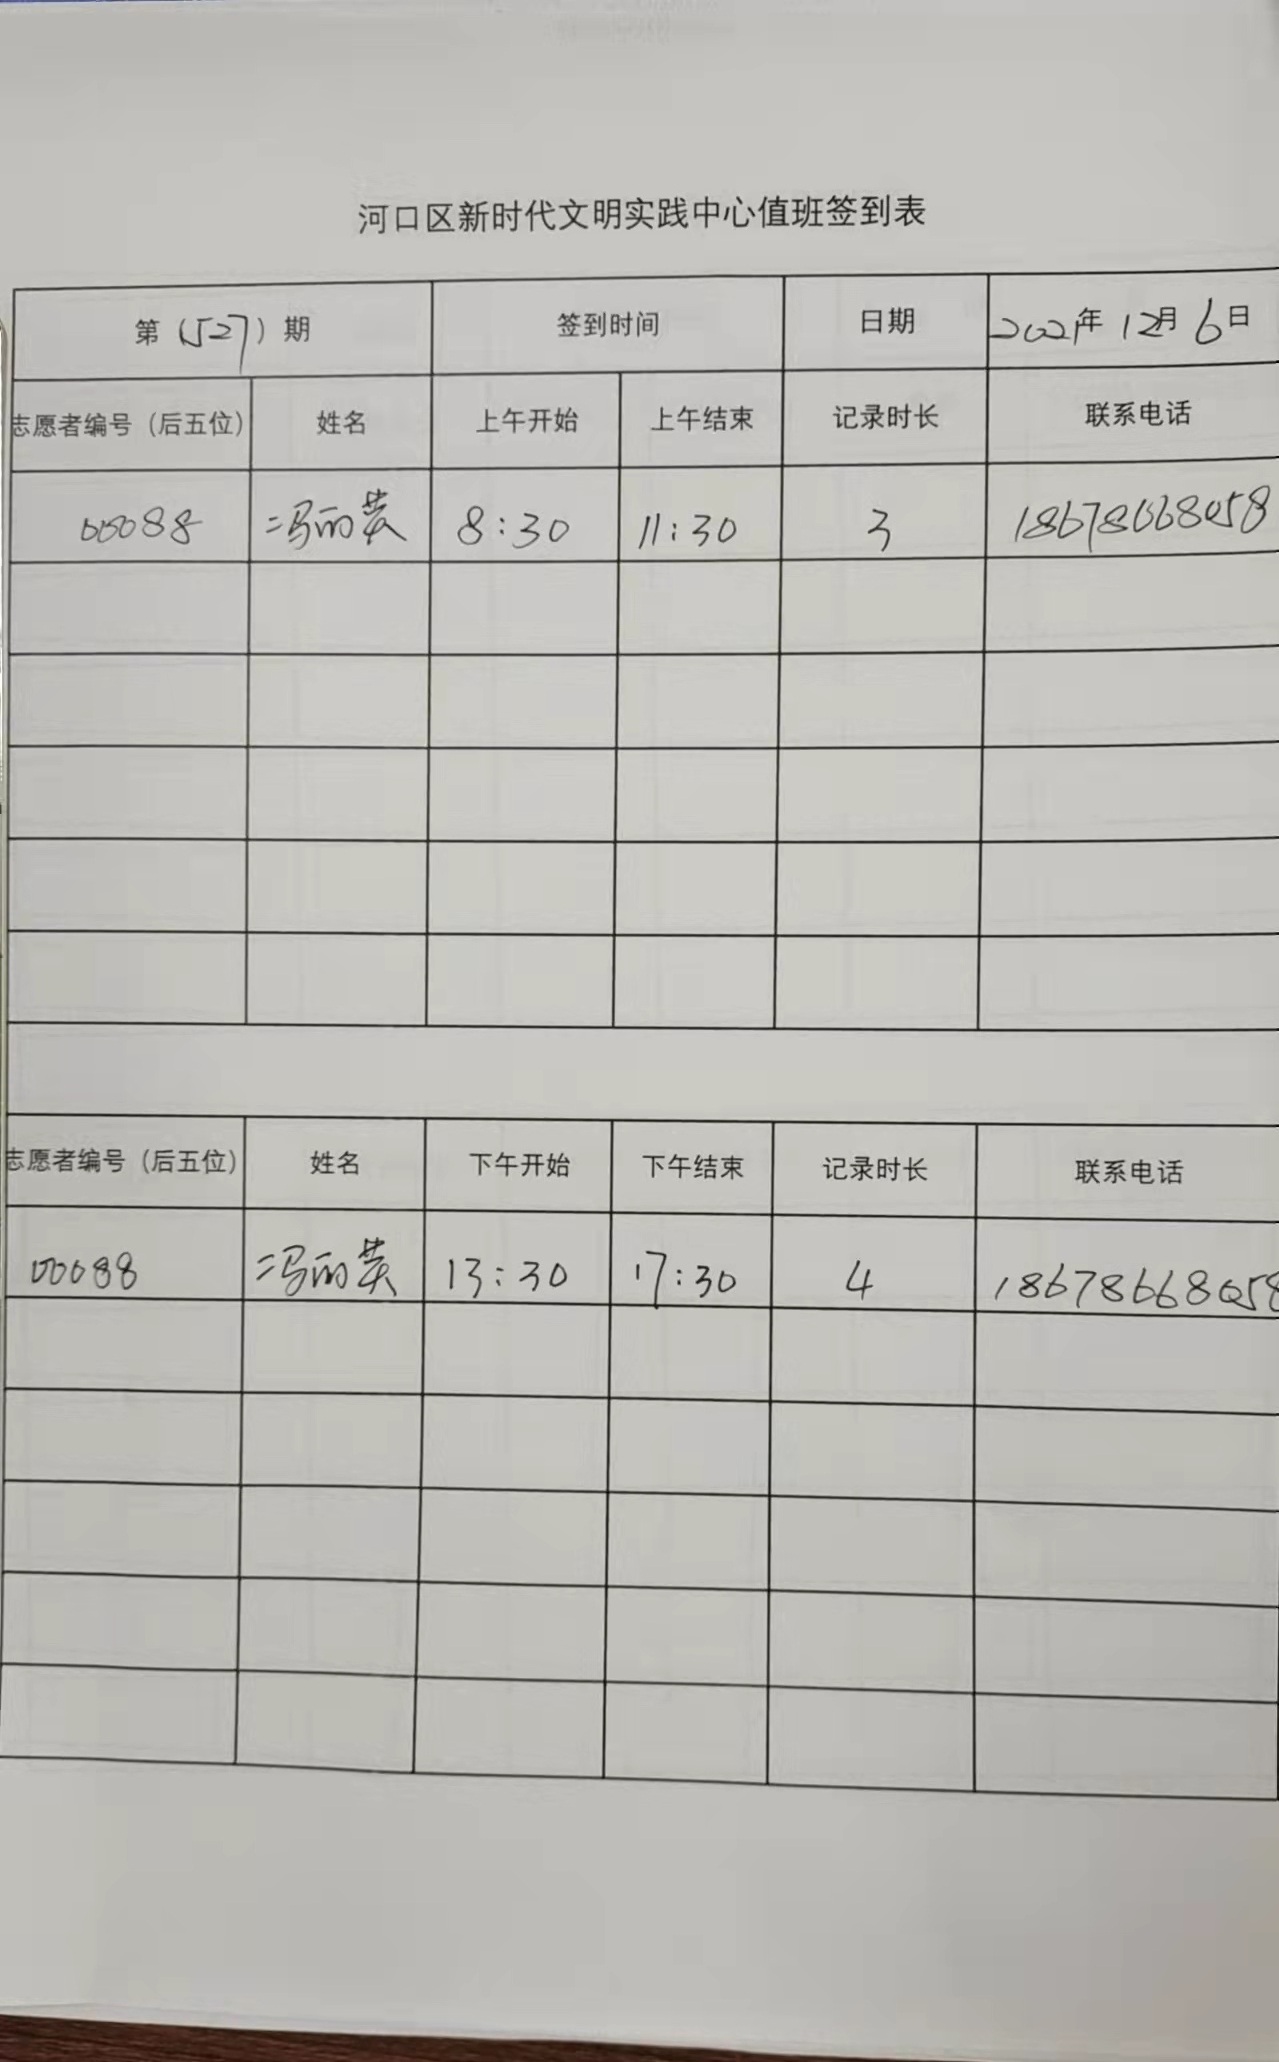 河口区新时代文明实践中心值班签到表
第（527）期 签到时间 日期 2021年 12月 6日
志愿者编号（后五位） 姓名 上午开始 上午结束 记录时长 联系电话
00088 冯丽英 8:30 11:30 3 18678668058
志愿者编号（后五位） 姓名 下午开始 下午结束 记录时长 联系电话
00088 冯丽英 13:30 17:30 4 18678668058